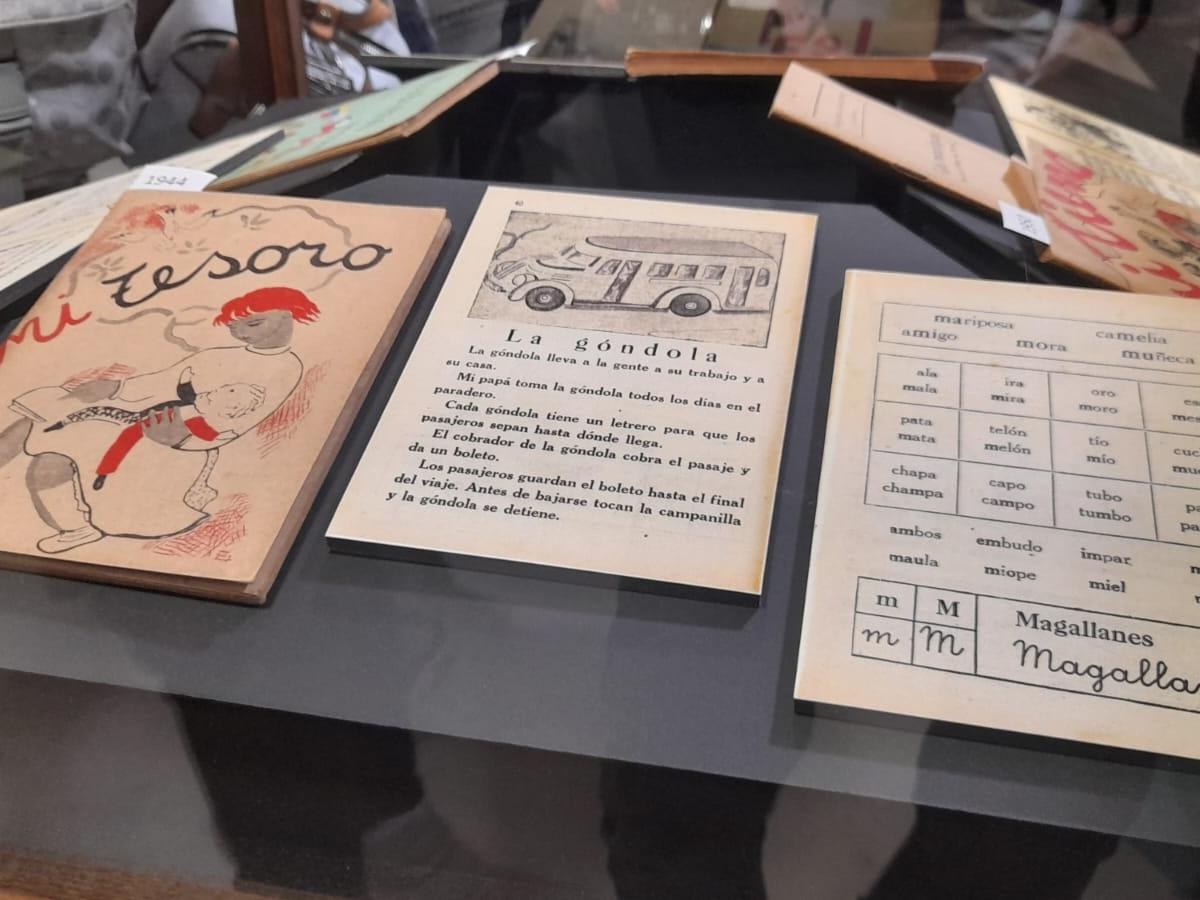 1944
mi tesoro
60
La góndola
La góndola lleva a la gente a su trabajo y a
su casa.
Mi papá toma la góndola todos los días en el
paradero.
Cada góndola tiene un letrero para que los
pasajeros sepan hasta dónde llega.
El cobrador de la góndola cobra el pasaje y
da un boleto.
Los pasajeros guardan el boleto hasta el final
del viaje. Antes de bajarse tocan la campanilla
y la góndola se detiene.
mariposa camelia
amigo mora muñeca
ala ira oro
mala mira moro
pata telón tío
mata melón mío
chapa capo tubo
champa campo tumbo
ambos embudo impar
maula miope miel
m M Magallanes
m M